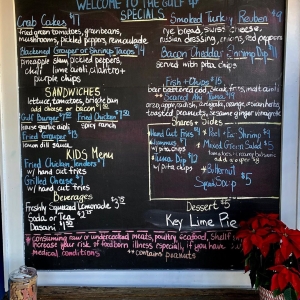 WELCOME TO THE GULF
SPECIALS
Crab Cakes $17
fried green tomatoes, green beans,
mushrooms, pickled peppers, remoulade
Blackened Grouper or Shrimp Tacos
pineapple slaw, pickled peppers,
chili lime aioli, cilantro +
purple chips
SANDWICHES
lettuce, tomatoes, brioche bun
add cheese or bacon
Gulf Burger
house garlic aioli
Fried Chicken
spicy ranch
Fried Grouper
lemon dill sauce
KIDS MENU
Fried Chicken Tenders
w/ hand cut fries
Grilled Cheese
w/ hand cut fries
Beverages
Freshly Squeezed Lemonade
Soda or Tea
Dasani
Smoked Turkey Reuben
rye bread, swiss cheese,
russian dressing, onions, red peppers
Bacon Cheddar Shrimp Dip
served with pita chips
Fish + Chips $15
beer battered cod, hand cut fries, malt aioli
Seared Ahi Tuna
toasted peanuts, sesame ginger vinegrette
Shares + Sides
Hand Cut Fries
Peel + Eat Shrimp
Hummus
w/ pita chips
Mixed Green Salad $5
Queso Dip
w/ pita chips
Butternut
Squash Soup
Dessert $5
Key Lime Pie
* consuming raw or undercooked meats, poultry, seafood, shellfish
increase your risk of foodborn illness especially, if you have
medical conditions
** contains peanuts